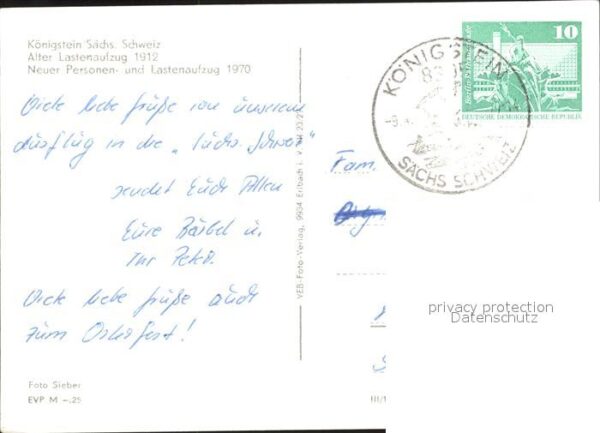 Königstein Sächs. Schweiz
Alter Lastenaufzug 1912
Neuer Personen- und Lastenaufzug 1970
Viele liebe Grüße von unserem
Ausflug in die „Sächs. Schweiz"
sendet Euch Allen
Eure Bärbel u.
Ihr Peter.
Viele liebe Grüße auch
zum Osterfest!
Foto Sieber
EVP M -.25
VEB-Foto-Verlag, 9934 Erlbach i. V.
III/1
KÖNIGSTEIN
SÄCHS SCHWEIZ
10
Berlin
DEUTSCHE DEMOKRATISCHE REPUBLIK
Fam.
privacy protection
Datenschutz